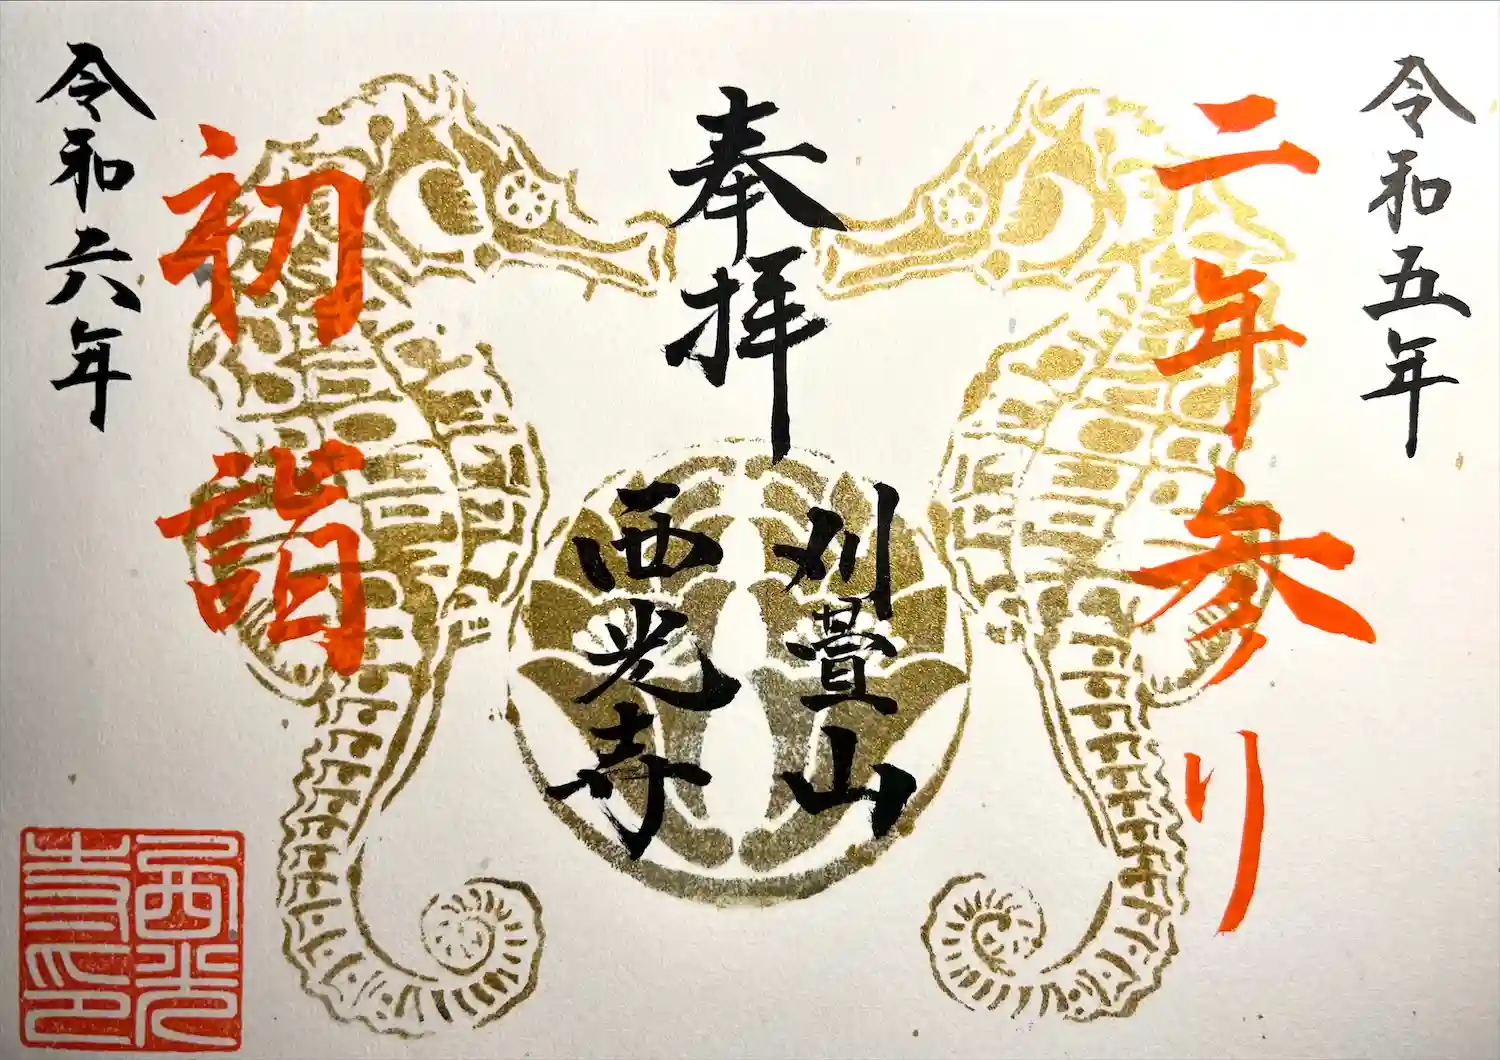 令和五年
二年参り
奉拝
刈萱山
西光寺
初詣
令和六年
西光
寺印